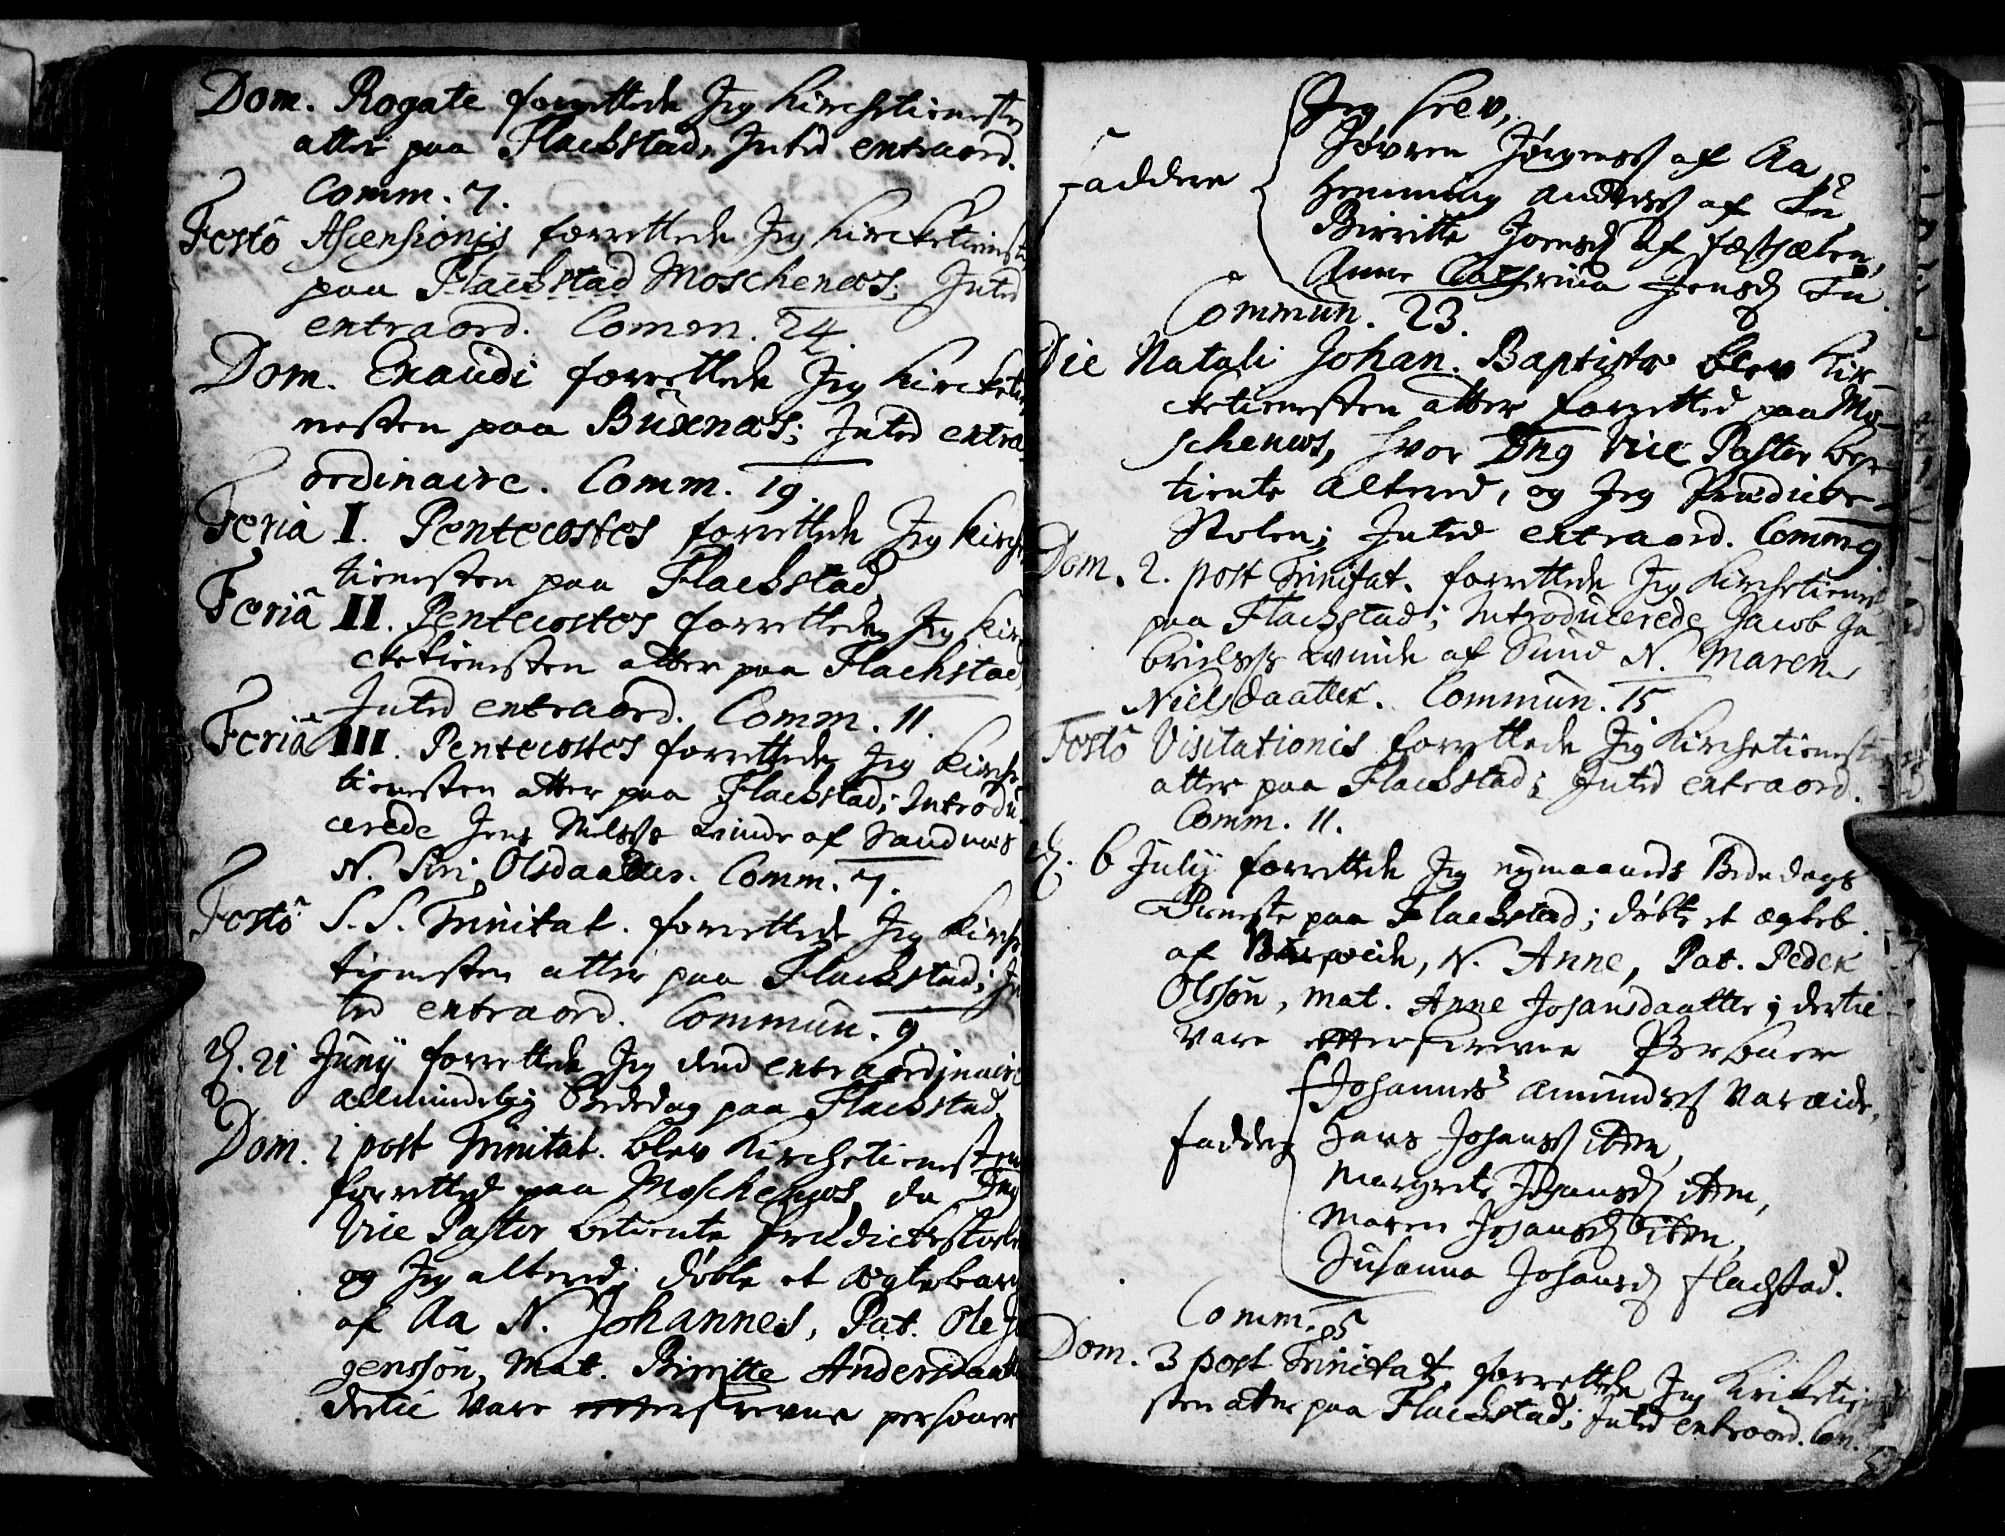 Dom. Rogate forrettede Jeg Kirchetienesten
atter paa Flachstad, Inted extraord.
Comm. 7.
Festo Ascensionis forrettede Jeg Kircketienest
paa Flachstad Moschenæs; Inted
extraord. Comm. 24.
Dom. Exaudi forrettede Jeg Kircketie
nesten paa Buxnæs; Inted extra
ordinaire. Comm. 19.
Feria I. Pentecostes forrettede Jeg Kirche
tienesten paa Flachstad,
Feria II. Pentecostes forrettede Jeg Kir
cketienesten atter paa Flachstad,
Inted extraord. Comm. 11.
Feria III. Pentecostes forrettede Jeg Kirche
tienesten atter paa Flachstad; Introdu
cerede Jens Nilss qvinde af Sandnæs
N. Siri Olsdaatter. Comm. 7.
Festo S. S. Trinitat. forrettede Jeg Kirche
tienesten atter paa Flachstad; In
ted extraord. Commun. 9.
21 Junij forrettede Jeg dend extraordinaire
allmindelig Bededag paa Flachstad,
Dom. 1 post Trinitat. blev Kirchetienesten
forrettet paa Moschenæs, da
Vice Pastor betiente Prædickestolen
og Jeg altered; døbte et ægtebarn
af Aa N. Johannes, Pat. Ole Jø
genssøn, Mat. Birritte Andersdaatt
dertil vare efterskrevne personer
Jeg selv,
Jøvren Jørgenss af Aa,
faddere Hemming Anderss af
Birritte Joensd af
Anne Cathrina Jensd
Commun. 23.
Die Natali Johan. Baptistæ blev Kir-
cketienesten atter forrettet paa Mo-
schenæs, hvor Vice Pastor be-
tiente Altered, og Jeg Prædicke-
Stolen; Inted extraord. Comm 9
Dom. 2. post Trinitat. forrettede Jeg Kirchetienest
paa Flachstad; Introducerede Jacob Ga-
brielss qvinde af Sund N. Maren
Nielsdaatter. Commun. 15
Festo Visitationis forrettede Jeg Kirchetienesten
atter paa Flachstad; Inted extraord.
Comm. 11.
6 July forrettede Jeg nymaaneds Bededags
Tieneste paa Flachstad; døbte et ægteb.
af N. Anne, Pat. Peder
Olssøn, mat. Anne Johansdaatter; dertil
vare efterskrevne Persoener
Johannes Amundss Vareide,
fadder Hans Johanss ibm,
Margrete Johansd ibm,
Maren Johansd ibm,
Susanna Johansd Flachstad.
Comm. 5
Dom. 3 post Trinitat. forrettede Jeg Kircketiene
sten atter paa Flachstad; Inted extraord. Com.